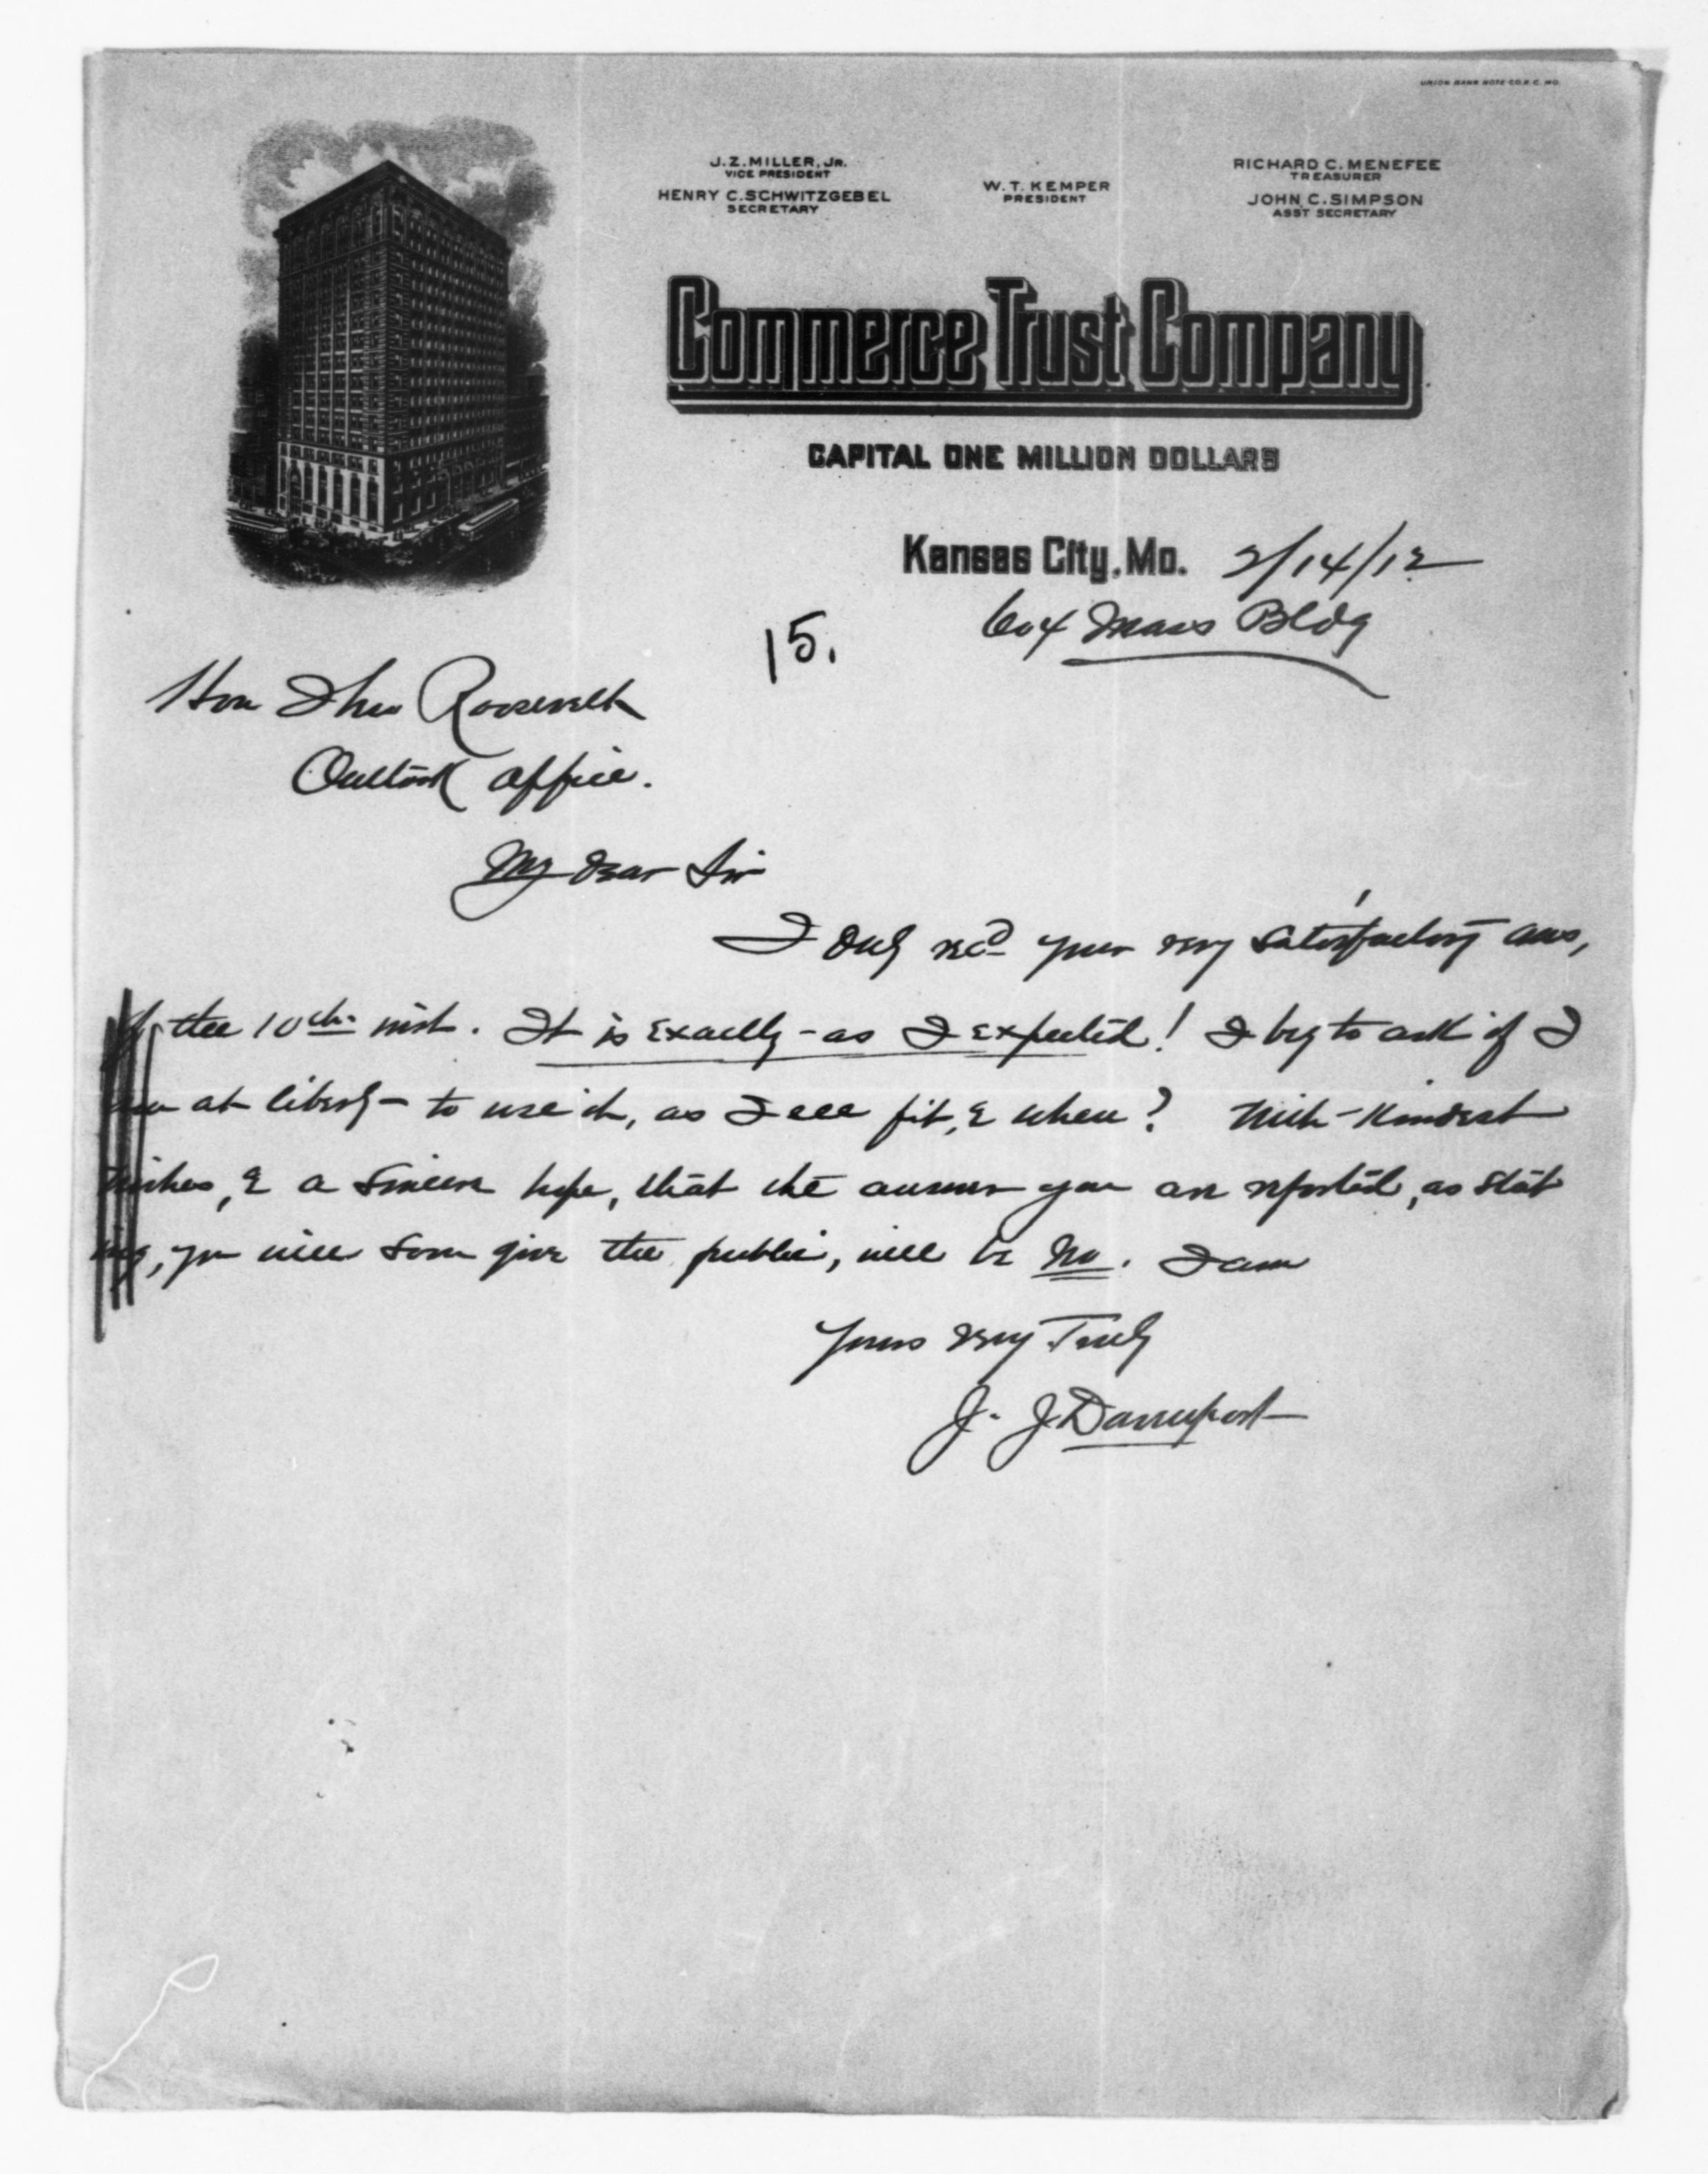 UNION BANK NOTE CO. K.C. MO.
J. Z. MILLER, JR.
VICE PRESIDENT
HENRY C. SCHWITZGEBEL
SECRETARY
W. T. KEMPER
PRESIDENT
RICHARD C. MENEFEE
TREASURER
JOHN C. SIMPSON
ASST SECRETARY
Commerce Trust Company
CAPITAL ONE MILLION DOLLARS
Kansas City, Mo. 2/14/12
604 Mass Bldg
15.
Hon Theo Roosevelt
Outlook office.
My dear Sir
I duly recd your very satisfactory ans,
of the 10th inst. It is exactly - as I expected! I beg to ask if I
am at liberty - to use it, as I see fit, & when? With - Kindest
wishes, & a sincere hope, that the answer you are reported, as stat
ing, you will soon give the public, will be No. I am
Yours very Truly
J. J. Davenport